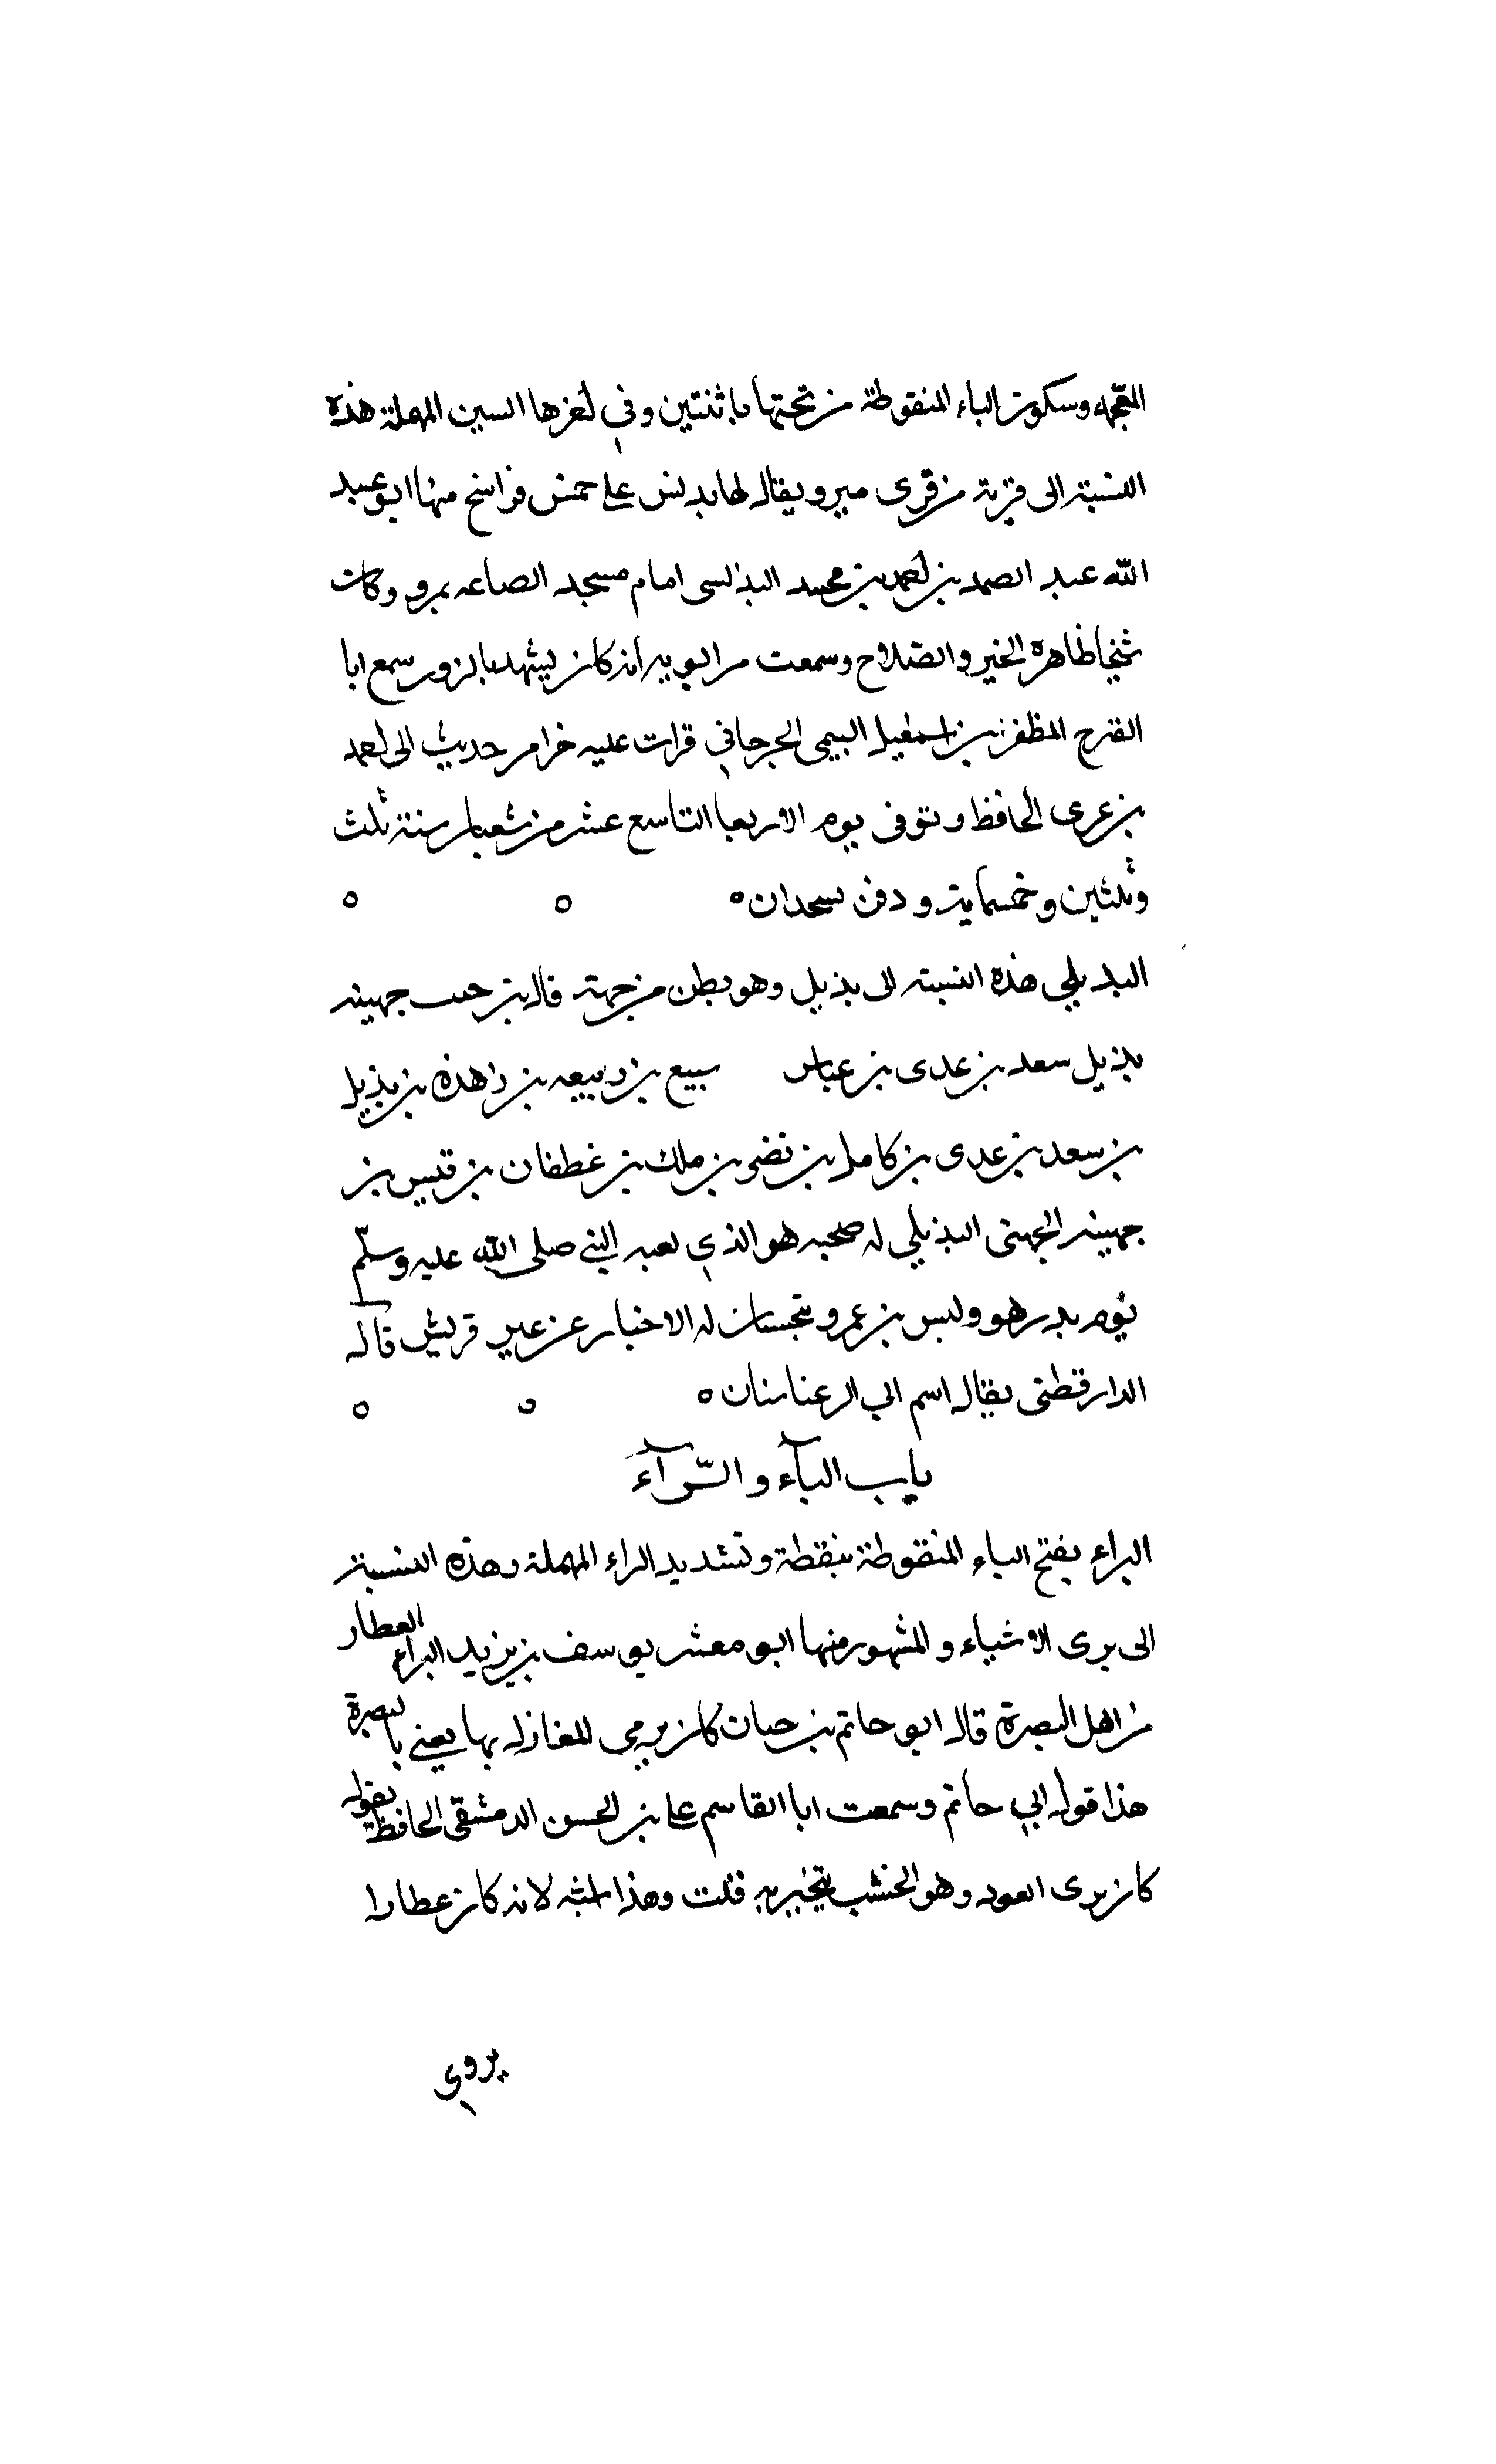 المعجمه وسكون الباء المنقوطة من تحتها باثنتين وفي اخرها السين المهملة هذه
النسبة الى قرية من قرى مرو يقال لها بديس على خمس فراسخ منها ابو عبد
الله عبد الصمد بن احمد بن محمد البذيسى امام مسجد الصاعه بمرو وكان
شيخا ظاهره الخير والصلاح وسمعت من اثق به انه كان يشهد بالزور سمع ابا
الفرج المظفر بن اسمعيل التيمى الجرجاني قرات عليه جزا من حديث ابى احمد
بن عدى الحافظ وتوفى يوم الاربعا التاسع عشر من شعبان سنة ثلث
وثلثين وخمسماية ودفن بسجدان ه ه ه
البديلي هذه النسبة الى بذيل وهو بطن من جهينة قال بن حبيب جهينه
بذيل سعد بن عدى بن عباس سبيع بن ربيعه بن زاهده بن بذيل
بن سعد بن عدى بن كامل بن نضر بن ملك بن غطفان بن قيس بن
جهينه الجهنى البذيلي له صحبه هو الذي بعثه النبي صلى الله عليه وسلم
يوم بدر هو وبسبس بن عمرو يتجسسان له الاخبار عن عير قريش قاله
الدارقطنى يقال اسم ابي الرعنا سنان ه ه ه
باب البآء والرّآء
البراء بفتح الباء المنقوطة بنقطة وتشديد الراء المهملة وهذه النسبة
الى برى الاشياء والمشهور منها ابو معشر يوسف بن يزيد البراء العطار
من اهل البصرة قال ابو حاتم بن حبان كان يرمي المغازل بها يعني بالبصرة
هذا قول ابي حاتم وسمعت ابا القاسم على بن الحسن الدمشقى الحافظ يقول
كان يبرى العود وهو الخشب يتبخر به قلت وهذا اشبه لانه كان عطارا
يروي